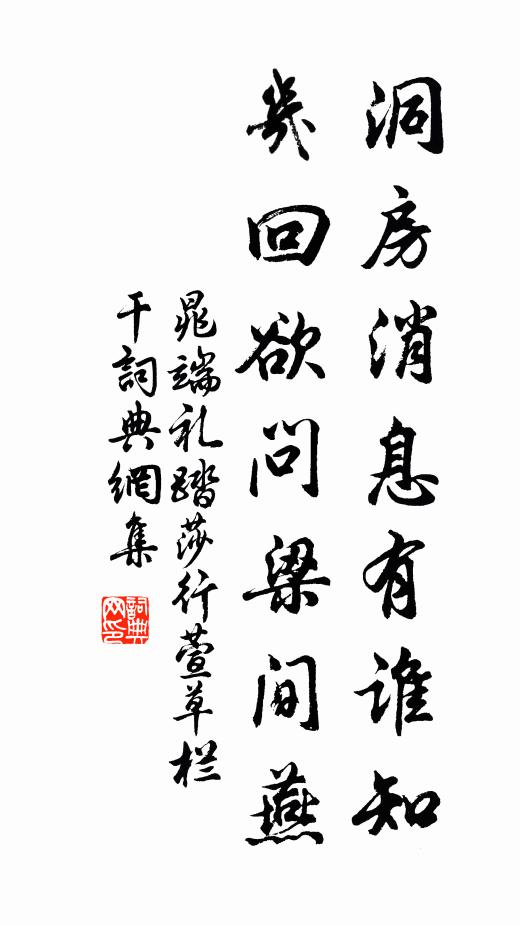 洞房消息有谁知
幾回欲问梁间燕
晁端礼踏莎行萱草栏
于詞典網集
詞典网印